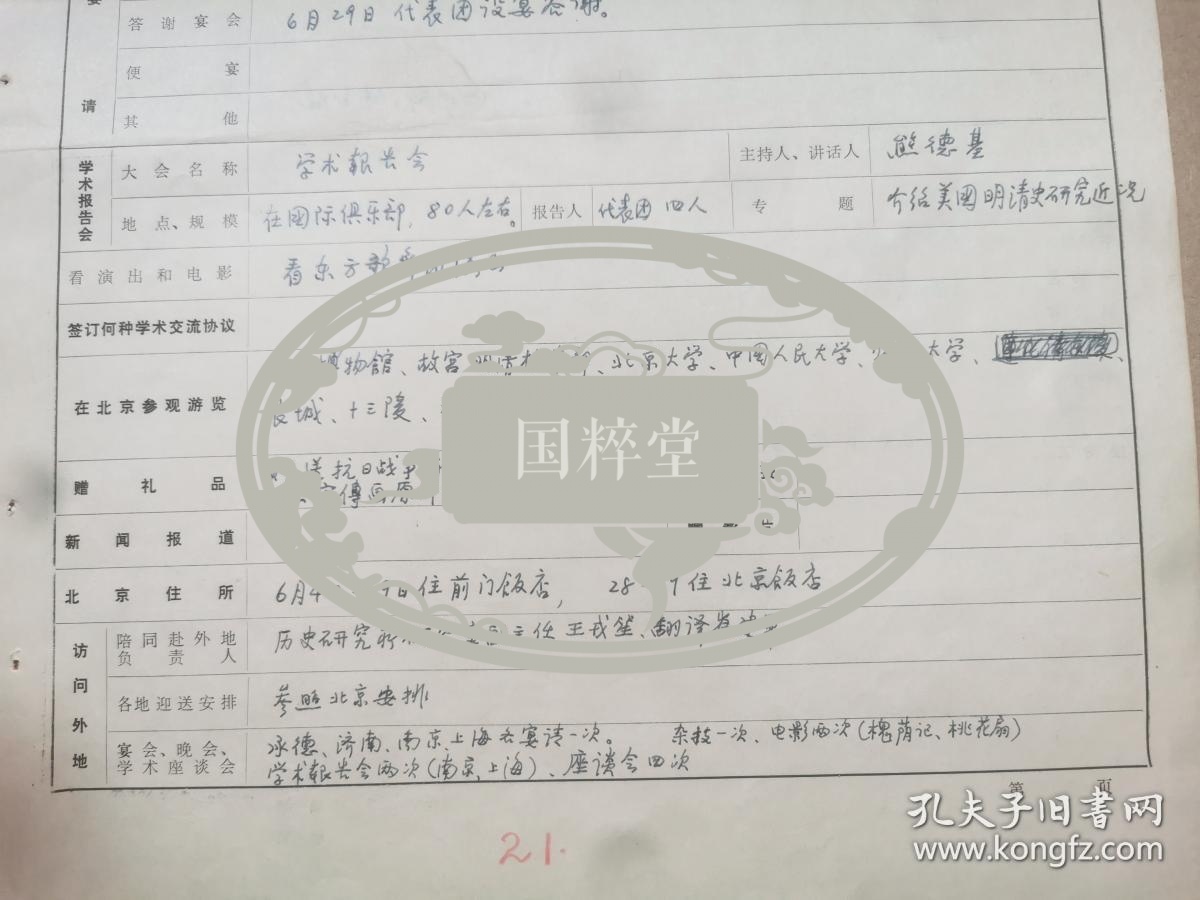 宴
答谢宴会 6月29日 代表团设宴答谢。
便宴
请
其他
学术报告会
大会名称 学术報告会 主持人、讲话人 熊德基
地点、规模 在国际俱乐部,80人左右。 报告人 代表团四人 专题 介绍美国明清史研究近况
看演出和电影 看东方歌
签订何种学术交流协议
在北京参观游览 博物館、故宫 、北京大学、中国人民大学、 大学、
长城、十三陵、
赠礼品 送抗日战
宣傳画
新闻报道
北京住所 6月4 日住前门飯店, 28 住北京飯店
访问外地
陪同赴外地负责人 历史研究所 主任王戎笙、翻译
各地迎送安排 参照北京安排
宴会、晚会、 承德、济南、南京、上海各宴请一次。 杂技一次、电影两次(槐荫记、桃花扇)
学术座谈会 学术報告会两次(南京、上海)、座谈会四次
第 页
21.
国粹堂
孔夫子旧书网
www.kongfz.com